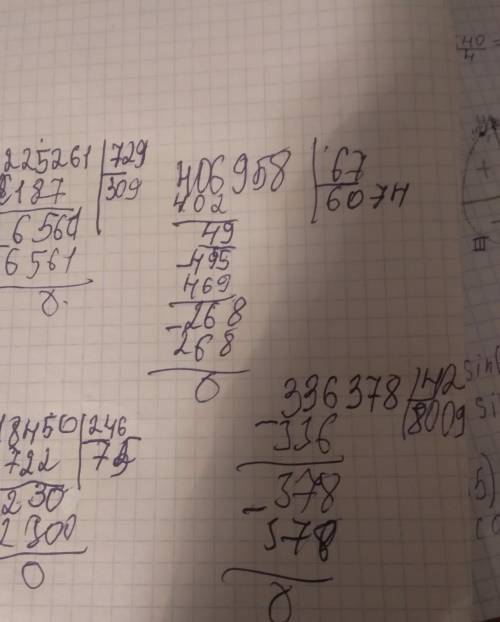 225261 729
2187 309
6561
6561
0
406958 67
402 6074
49
495
469
268
268
0
18450 246
722 75
230
2300
0
336378 42
336 8009
378
378
0
40
4
+
III
sin
si
5)